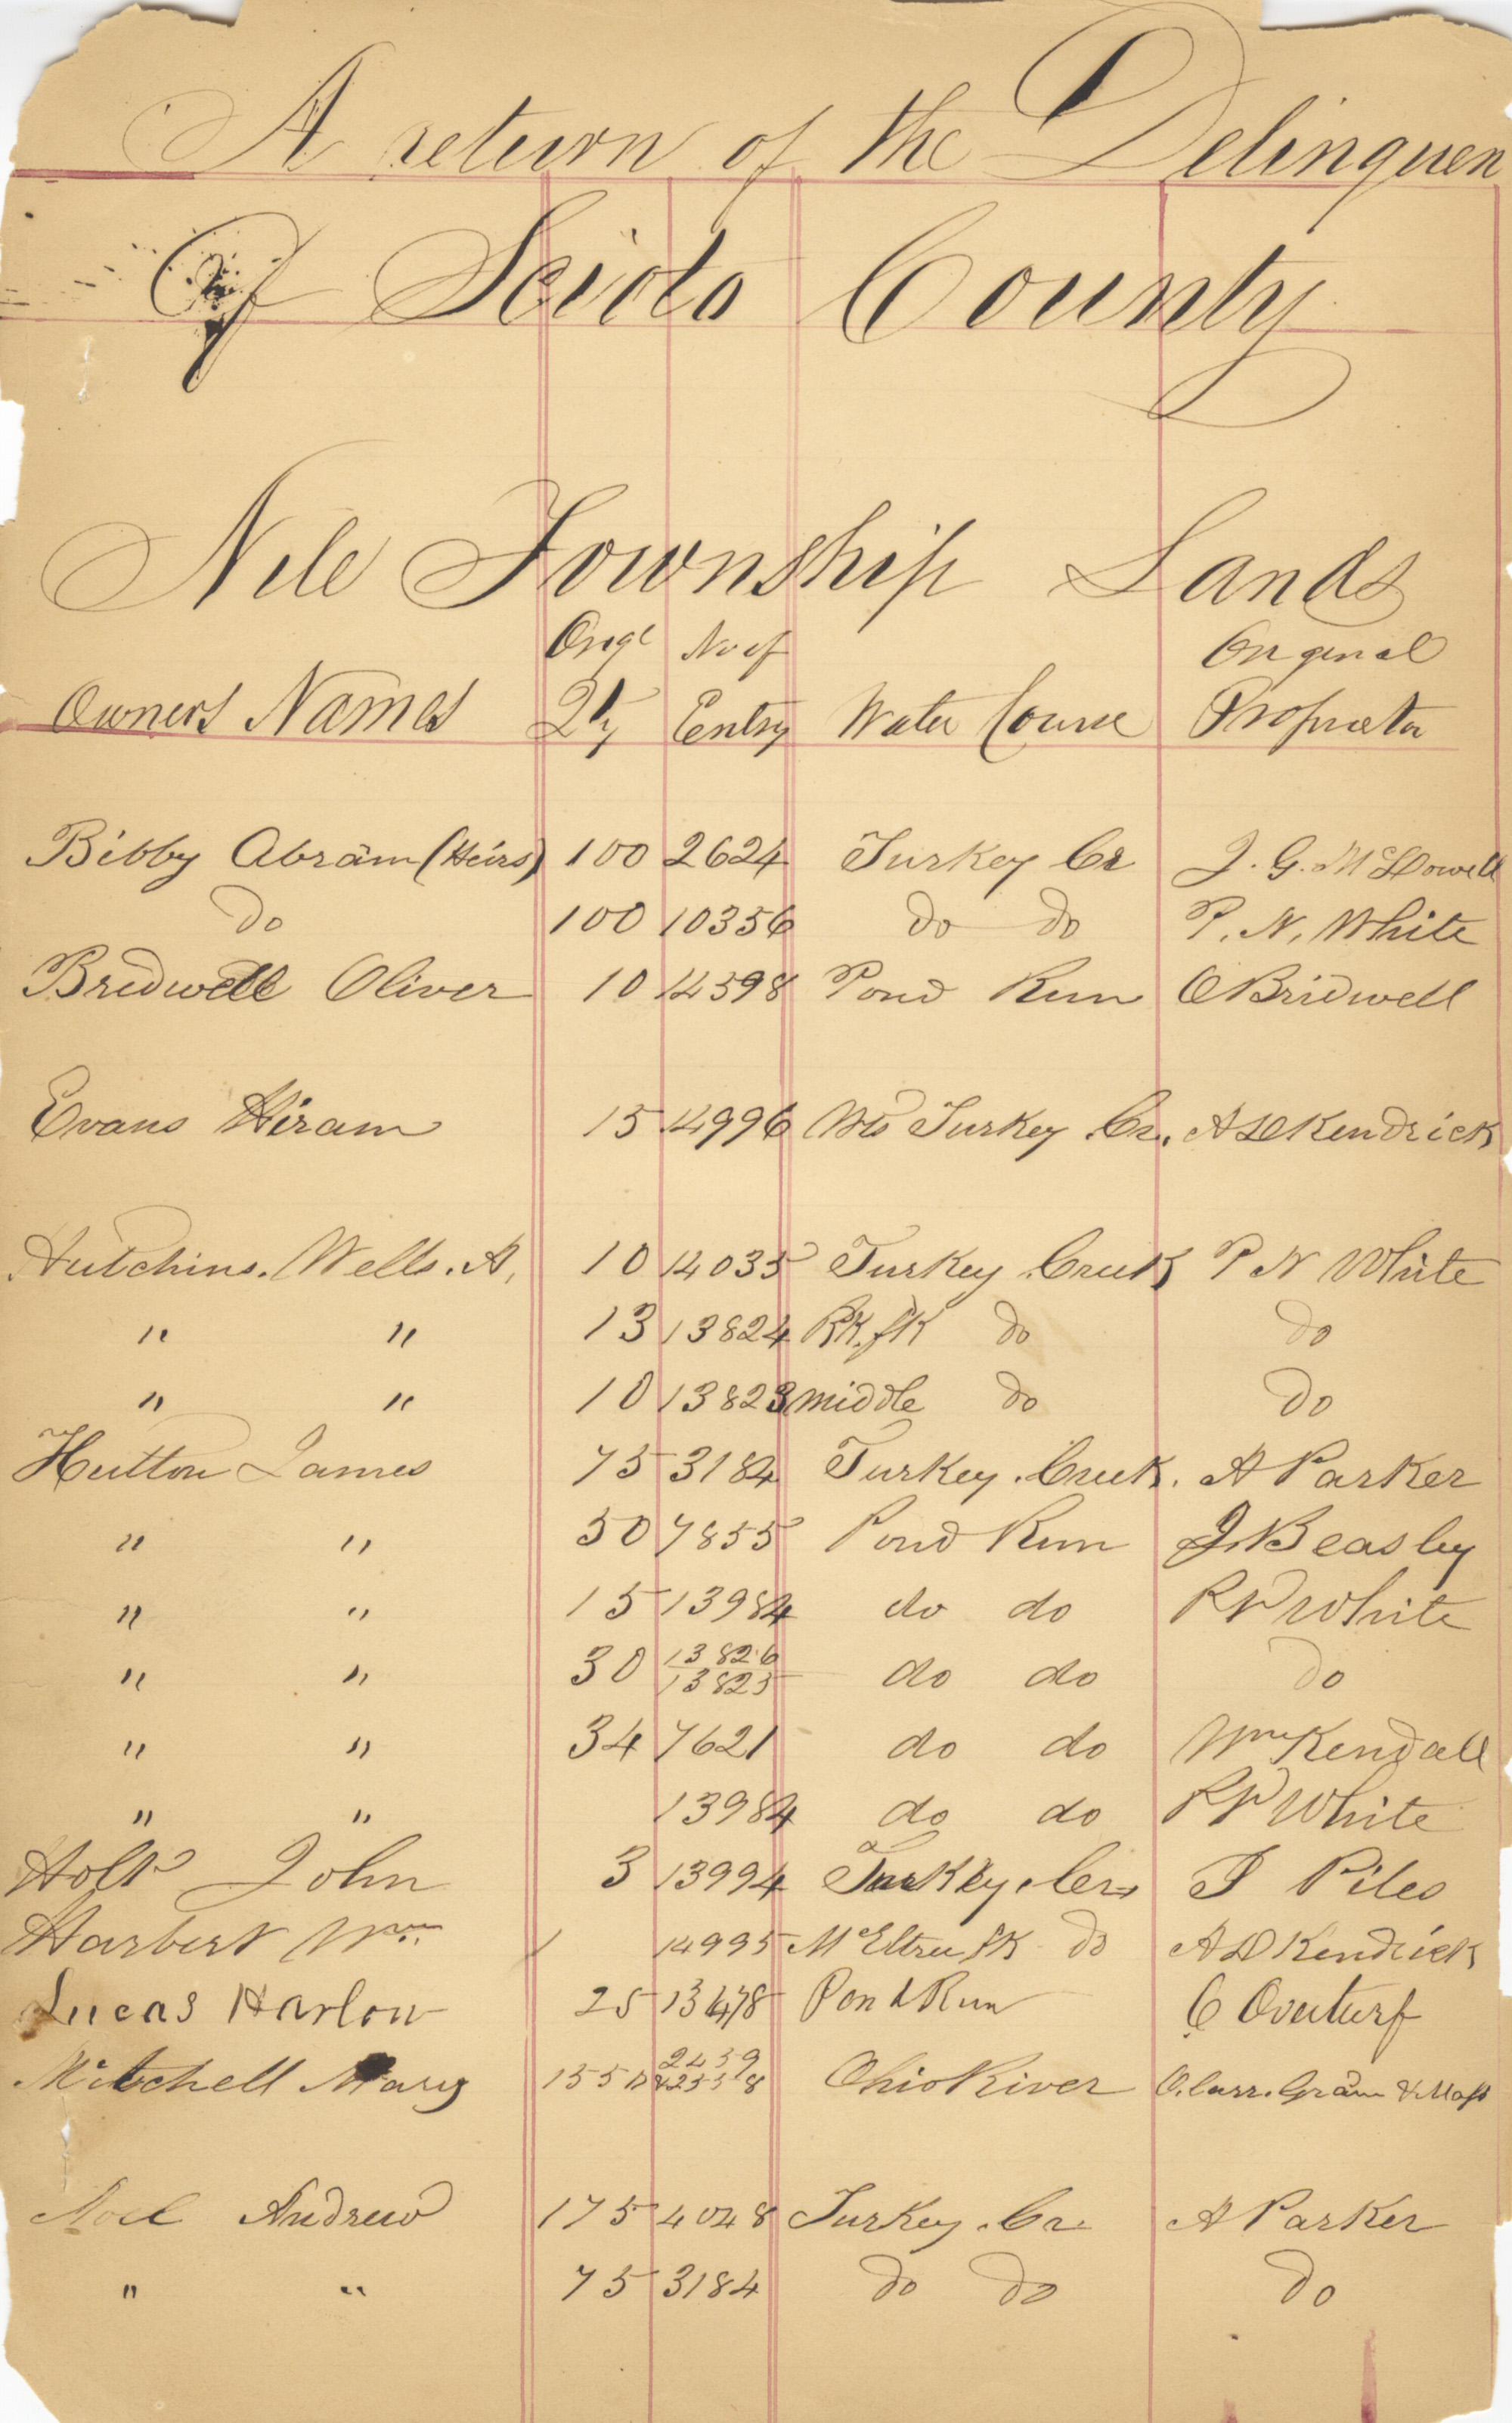 A return of the Delinquen
Of Scioto County
Nile Township Lands
Origl No of Original
Owners Names Qty Entry Water Course Proprietor
Bibby Abram (Heirs) 100 2624 Turkey Cr J. G. McDowell
do 100 10356 do do P. N. White
Bredwell Oliver 10 14398 Pond Run O Bridwell
Evans Hiram 15 14996 Turkey Cr. A D Kendrick
Hutchins. Wells. A. 10 14035 Turkey Creek P N White
" " 13 13824 RK. fK do do
" " 10 13823 middle do do
Hutton James 75 3184 Turkey Creek. A Parker
" " 50 7855 Pond Run J. Beasley
" " 15 13984 do do R P White
" " 30 13826 13825 do do do
" " 34 7621 do do Wm Kendall
" " 13984 do do R P White
Holt John 3 13994 Turkey. Cr. J Piles
Harbert Wm. 1 14995 fK do A D Kendrick
Lucas Harlow 25 13478 Pond Run C Overturf
Mitchell Mary 155 2439 Ohio River O. Carr. Gram &
Noel Andrew 175 4048 Turkey. Cr. A Parker
" " 75 3184 do do do